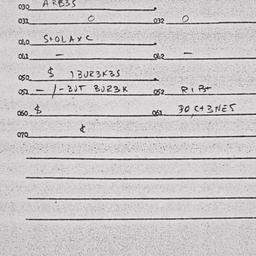 030 ARB3S
031 0 032 0
040 S+OLAXC
041 – 042 –
050 $ 13UR3K3S
051 – /-3UT BUR3K 052 RIB+
060 $ 061 30,C+3NES
070 ¢